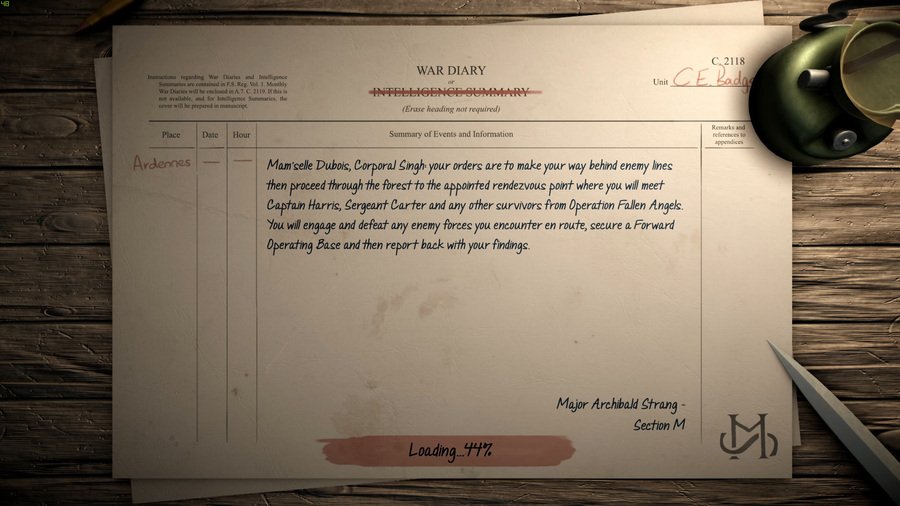 48
Instructions regarding War Diaries and Intelligence
Summaries are contained in F.S. Reg. Vol. 1. Monthly
War Diaries will be enclosed in A.7. C. 2119. If this is
not available, and for Intelligence Summaries, the
cover will be prepared in manuscript.
WAR DIARY
or
INTELLIGENCE SUMMARY
(Erase heading not required)
C. 2118
Unit C.E. Badge
Place Date Hour Summary of Events and Information Remarks and
references to
appendices
Ardennes — —
Mam'selle Dubois, Corporal Singh your orders are to make your way behind enemy lines
then proceed through the forest to the appointed rendezvous point where you will meet
Captain Harris, Sergeant Carter and any other survivors from Operation Fallen Angels.
You will engage and defeat any enemy forces you encounter en route, secure a Forward
Operating Base and then report back with your findings.
Major Archibald Strang -
Section M
Loading...44%